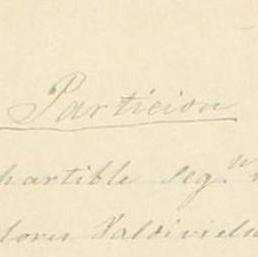 Particion
partible seg.n
lores Valdivielso